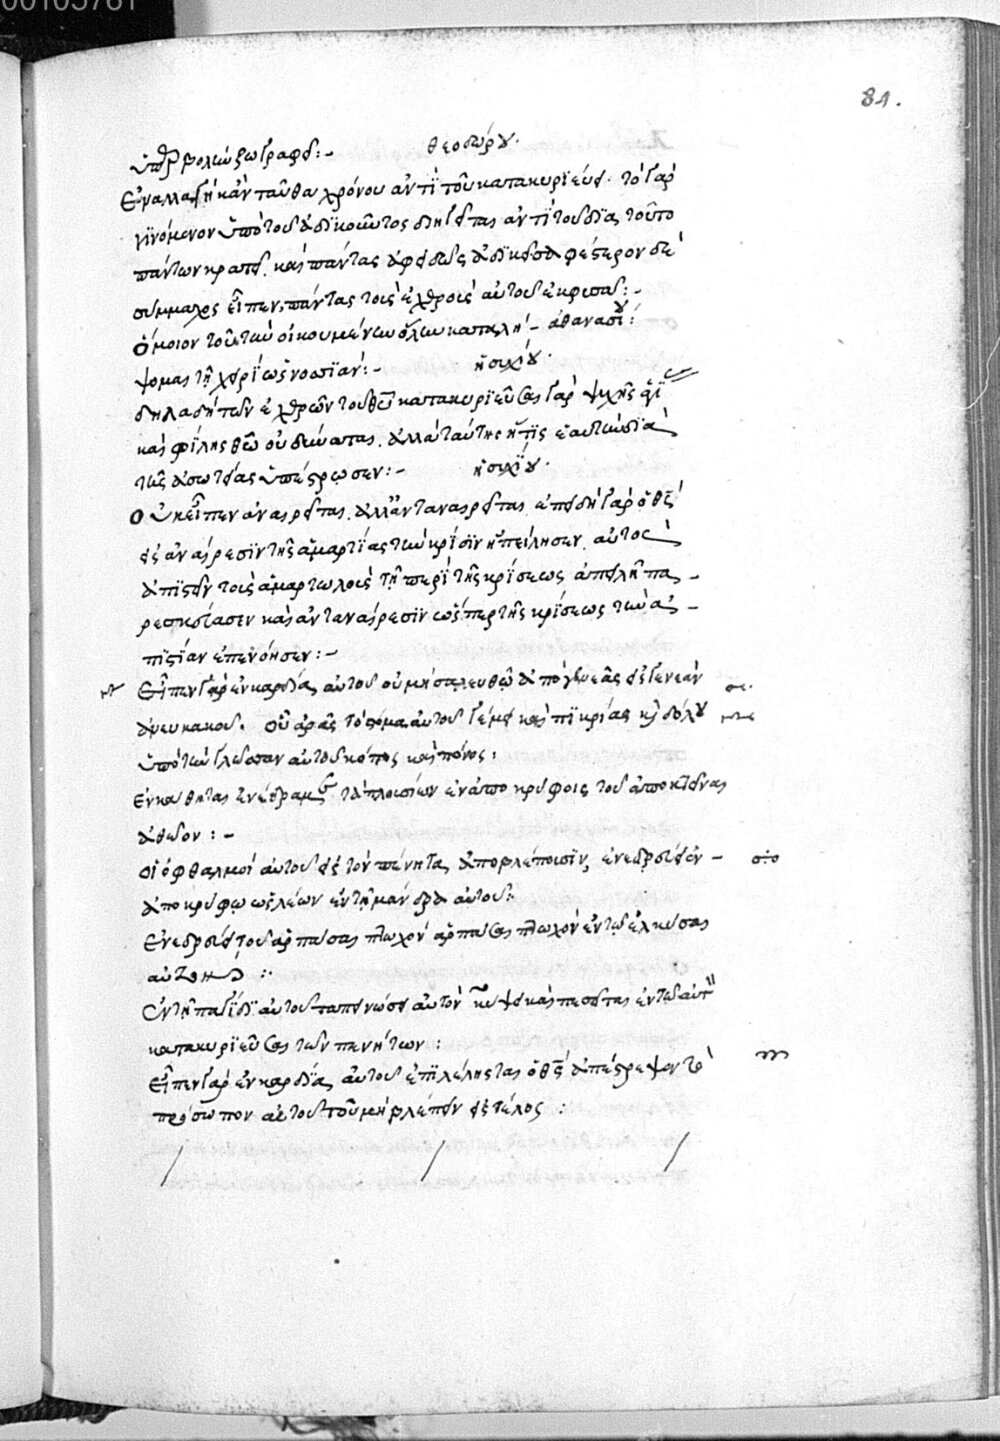 00105781
84.
ὑπερβολὴν ζωγραφεῖ :- θεοδώρου.
Ἐναλλαγὴ κἀνταῦθα χρόνου ἀντὶ τοῦ κατακυριεύει. τὸ γὰρ
γινόμενον ὑπὸ τοῦ ἀδικοῦντος
πάντων κρατεῖ. καὶ πάντας ἀφειδῶς
σύμμαχος εἶπεν, πάντας τοὺς ἐχθροὺς αὐτοῦ ἐκφυσᾷ :-
ὅμοιον τοῦ τὴν οἰκουμένην ὅλην καταλή- ἀθανασίου :
ψομαι τῇ χειρὶ ὡς νοσσιάν :- ἡσυχίου.
δηλαδὴ τῶν ἐχθρῶν τοῦ θεοῦ κατακυριεῦσαι γὰρ ψυχῆς
καὶ φίλης θεῷ οὐ δύναται. ἀλλὰ ταύτης ἥτις ἑαυτὴν διὰ
τῆς ἀσωτείας ὑπέστρωσεν :- ἡσυχίου.
Οὐκ εἶπεν ἀναιρεῖται. ἀλλ' ἀνταναιρεῖται. ἐπειδὴ γὰρ ὁ θεὸς
εἰς ἀναίρεσιν τῆς ἁμαρτίας τὴν κρίσιν ἠπείλησεν. αὐτὸς
ἀπιστεῖν τοὺς ἁμαρτωλοὺς τῇ περὶ τῆς κρίσεως ἀπειλῇ πα-
ρεσκεύασεν καὶ ἀνταναίρεσιν ὥσπερ τῆς κρίσεως τὴν ἀ-
πιστίαν ἐπενόησεν :-
Εἶπεν γὰρ ἐν καρδίᾳ αὐτοῦ οὐ μὴ σαλευθῶ ἀπὸ γενεᾶς εἰς γενεὰν
ἄνευ κακοῦ. οὗ ἀρᾶς τὸ στόμα αὐτοῦ γέμει καὶ πικρίας καὶ δόλου
ὑπὸ τὴν γλῶσσαν αὐτοῦ κόπος καὶ πόνος :
ἐγκάθηται ἐνέδρᾳ μετὰ πλουσίων ἐν ἀποκρύφοις τοῦ ἀποκτεῖναι
ἀθῷον :-
οἱ ὀφθαλμοὶ αὐτοῦ εἰς τὸν πένητα ἀποβλέπουσιν, ἐνεδρεύει ἐν -
ἀποκρύφῳ ὡς λέων ἐν τῇ μάνδρᾳ αὐτοῦ :
Ἐνεδρεύει τοῦ ἁρπάσαι πτωχόν ἁρπάσαι πτωχὸν ἐν τῷ ἑλκύσαι
αὐτὸν :·
Ἐν τῇ παγίδι αὐτοῦ ταπεινώσει αὐτόν κύψει καὶ πεσεῖται ἐν τῷ αὐτὸν
κατακυριεῦσαι τῶν πενήτων :
Εἶπεν γὰρ ἐν καρδίᾳ αὐτοῦ ἐπιλέλησται ὁ θεὸς ἀπέστρεψεν τὸ
πρόσωπον αὐτοῦ τοῦ μὴ βλέπειν εἰς τέλος :